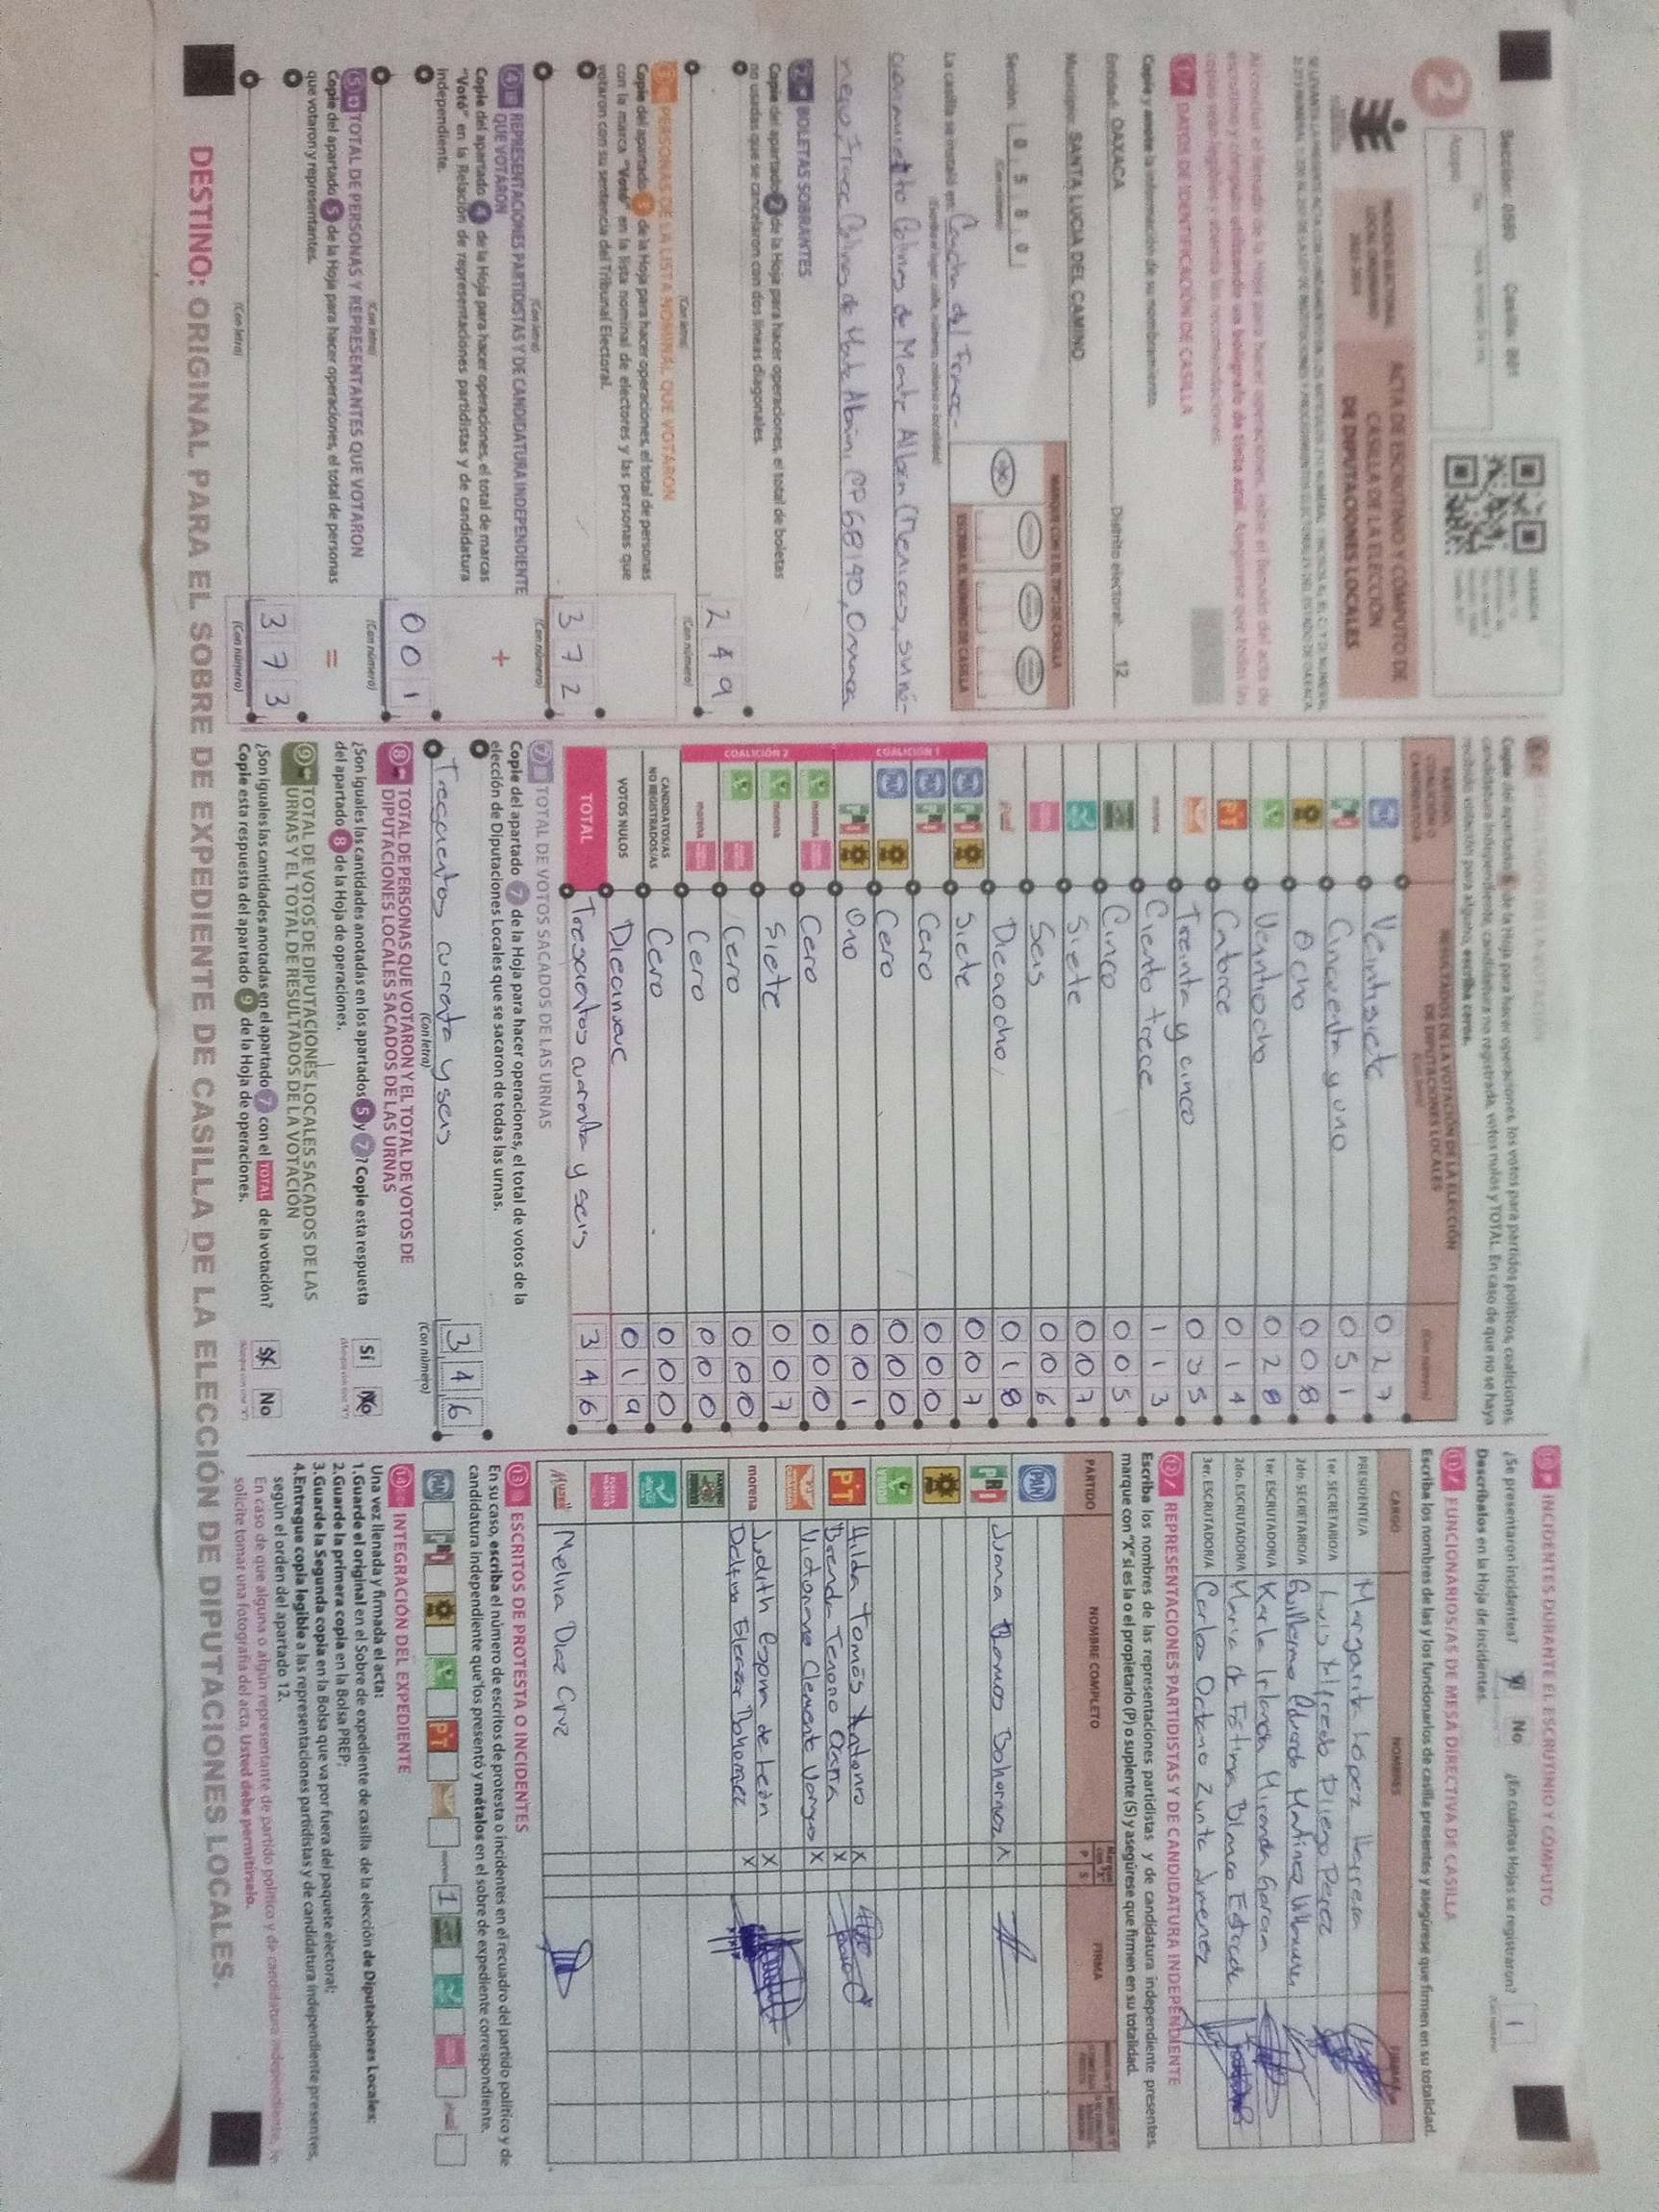 Sección: 0580 Casilla: B01
2
Acopio
PROCESO ELECTORAL
LOCAL ORDINARIO
2023-2024
ACTA DE ESCRUTINIO Y CÓMPUTO DE
CASILLA DE LA ELECCIÓN
DE DIPUTACIONES LOCALES
1 DATOS DE IDENTIFICACIÓN DE CASILLA
Copie y anote la información de su nombramiento.
Entidad: OAXACA Distrito electoral: 12
Municipio: SANTA LUCIA DEL CAMINO
Sección: 0 5 8 0
(Con número)
MARQUE CON X EL TIPO DE CASILLA
ESCRIBA EL NÚMERO DE CASILLA
La casilla se instaló en: Cancha del Fracc-
(Escriba el lugar: calle, número, colonia o localidad)
cionamiento Colinas de Monte Albán (Tenicas, sin nú-
mero, Fracc. Colinas de Monte Albán, CP 68140, Oaxaca
2 BOLETAS SOBRANTES
Copie del apartado 2 de la Hoja para hacer operaciones, el total de boletas
no usadas que se cancelaron con dos líneas diagonales.
2 4 9
(Con letra) (Con número)
3 PERSONAS DE LA LISTA NOMINAL QUE VOTARON
Copie del apartado 3 de la Hoja para hacer operaciones, el total de personas
con la marca "Votó" en la lista nominal de electores y las personas que
votaron con su sentencia del Tribunal Electoral.
3 7 2
(Con letra) (Con número)
4 REPRESENTACIONES PARTIDISTAS Y DE CANDIDATURA INDEPENDIENTE
QUE VOTARON
+
Copie del apartado 4 de la Hoja para hacer operaciones, el total de marcas
"Votó" en la Relación de representaciones partidistas y de candidatura
independiente.
0 0 1
(Con letra) (Con número)
5 TOTAL DE PERSONAS Y REPRESENTANTES QUE VOTARON
=
Copie del apartado 5 de la Hoja para hacer operaciones, el total de personas
que votaron y representantes.
3 7 3
(Con letra) (Con número)
Copie del apartado 6 de la Hoja para hacer operaciones, los votos para partidos políticos, coaliciones,
candidatura independiente, candidatura no registrada, votos nulos y TOTAL. En caso de que no se haya
recibido votación para alguno, escriba ceros.
PARTIDO, COALICIÓN O CANDIDATO/A
RESULTADOS DE LA VOTACIÓN DE LA ELECCIÓN
DE DIPUTACIONES LOCALES
(Con letra)
(Con número)
PAN Veintisiete 0 2 7
PRI Cincuenta y uno 0 5 1
Ocho 0 0 8
Veintiocho 0 2 8
PT Catorce 0 1 4
Treinta y cinco 0 3 5
morena Ciento trece 1 1 3
Cinco 0 0 5
Siete 0 0 7
Seis 0 0 6
Dieciocho 0 1 8
COALICIÓN 1
PAN PRI Siete 0 0 7
PAN PRI Cero 0 0 0
PAN Cero 0 0 0
PRI Uno 0 0 1
COALICIÓN 2
morena Cero 0 0 0
morena Siete 0 0 7
Cero 0 0 0
morena Cero 0 0 0
CANDIDATOS/AS
NO REGISTRADOS/AS Cero 0 0 0
VOTOS NULOS Diecinueve 0 1 9
TOTAL Trescientos cuarenta y seis 3 4 6
7 TOTAL DE VOTOS SACADOS DE LAS URNAS
Copie del apartado 7 de la Hoja para hacer operaciones, el total de votos de la
elección de Diputaciones Locales que se sacaron de todas las urnas.
Trescientos cuarenta y seis 3 4 6
(Con letra) (Con número)
8 TOTAL DE PERSONAS QUE VOTARON Y EL TOTAL DE VOTOS DE
DIPUTACIONES LOCALES SACADOS DE LAS URNAS
¿Son iguales las cantidades anotadas en los apartados 5 y 7? Copie esta respuesta
del apartado 8 de la Hoja de operaciones.
Sí No
9 TOTAL DE VOTOS DE DIPUTACIONES LOCALES SACADOS DE LAS
URNAS Y EL TOTAL DE RESULTADOS DE LA VOTACIÓN
¿Son iguales las cantidades anotadas en el apartado 7 con el TOTAL de la votación?
Copie esta respuesta del apartado 9 de la Hoja de operaciones.
Sí No
10 INCIDENTES DURANTE EL ESCRUTINIO Y CÓMPUTO
¿Se presentaron incidentes? Sí No ¿En cuántas Hojas se registraron? 1
Descríbalos en la Hoja de incidentes.
11 FUNCIONARIOS/AS DE MESA DIRECTIVA DE CASILLA
Escriba los nombres de las y los funcionarios de casilla presentes y asegúrese que firmen en su totalidad.
CARGO NOMBRES FIRMAS
PRESIDENTE/A Margarita López Herrera
1er. SECRETARIO/A Luis Alfredo Pliego Pérez
2do. SECRETARIO/A Guillermo Eduardo Martinez
1er. ESCRUTADOR/A Karla Irlanda Miranda García
2do. ESCRUTADOR/A María de Fátima Blanco
3er. ESCRUTADOR/A Carlos Octavio Zurita Jimenez
12 REPRESENTACIONES PARTIDISTAS Y DE CANDIDATURA INDEPENDIENTE
Escriba los nombres de las representaciones partidistas y de candidatura independiente presentes,
marque con "X" si es la o el propietario (P) o suplente (S) y asegúrese que firmen en su totalidad.
PARTIDO NOMBRE COMPLETO P S FIRMA
PAN
PRI Juana Ramos Bohorquez X
VERDE
PT Hilda Tomás Antonio X
Brenda Tenorio X
Victoriano Clemente Vargas X
morena Judith Espina de León X
Delfina X
Melva Diaz Cruz
13 ESCRITOS DE PROTESTA O INCIDENTES
En su caso, escriba el número de escritos de protesta o incidentes en el recuadro del partido político y de
candidatura independiente que los presentó y métalos en el sobre de expediente correspondiente.
PAN PRI PT morena 1
14 INTEGRACIÓN DEL EXPEDIENTE
Una vez llenada y firmada el acta:
1.Guarde el original en el Sobre de expediente de casilla de la elección de Diputaciones Locales;
2.Guarde la primera copia en la Bolsa PREP;
3.Guarde la Segunda copia en la Bolsa que va por fuera del paquete electoral;
4.Entregue copia legible a las representaciones partidistas y de candidatura independiente presentes,
según el orden del apartado 12.
En caso de que alguna o algún representante de partido político y de candidatura independiente, le
solicite tomar una fotografía del acta, Usted debe permitírselo.
DESTINO: ORIGINAL PARA EL SOBRE DE EXPEDIENTE DE CASILLA DE LA ELECCIÓN DE DIPUTACIONES LOCALES.